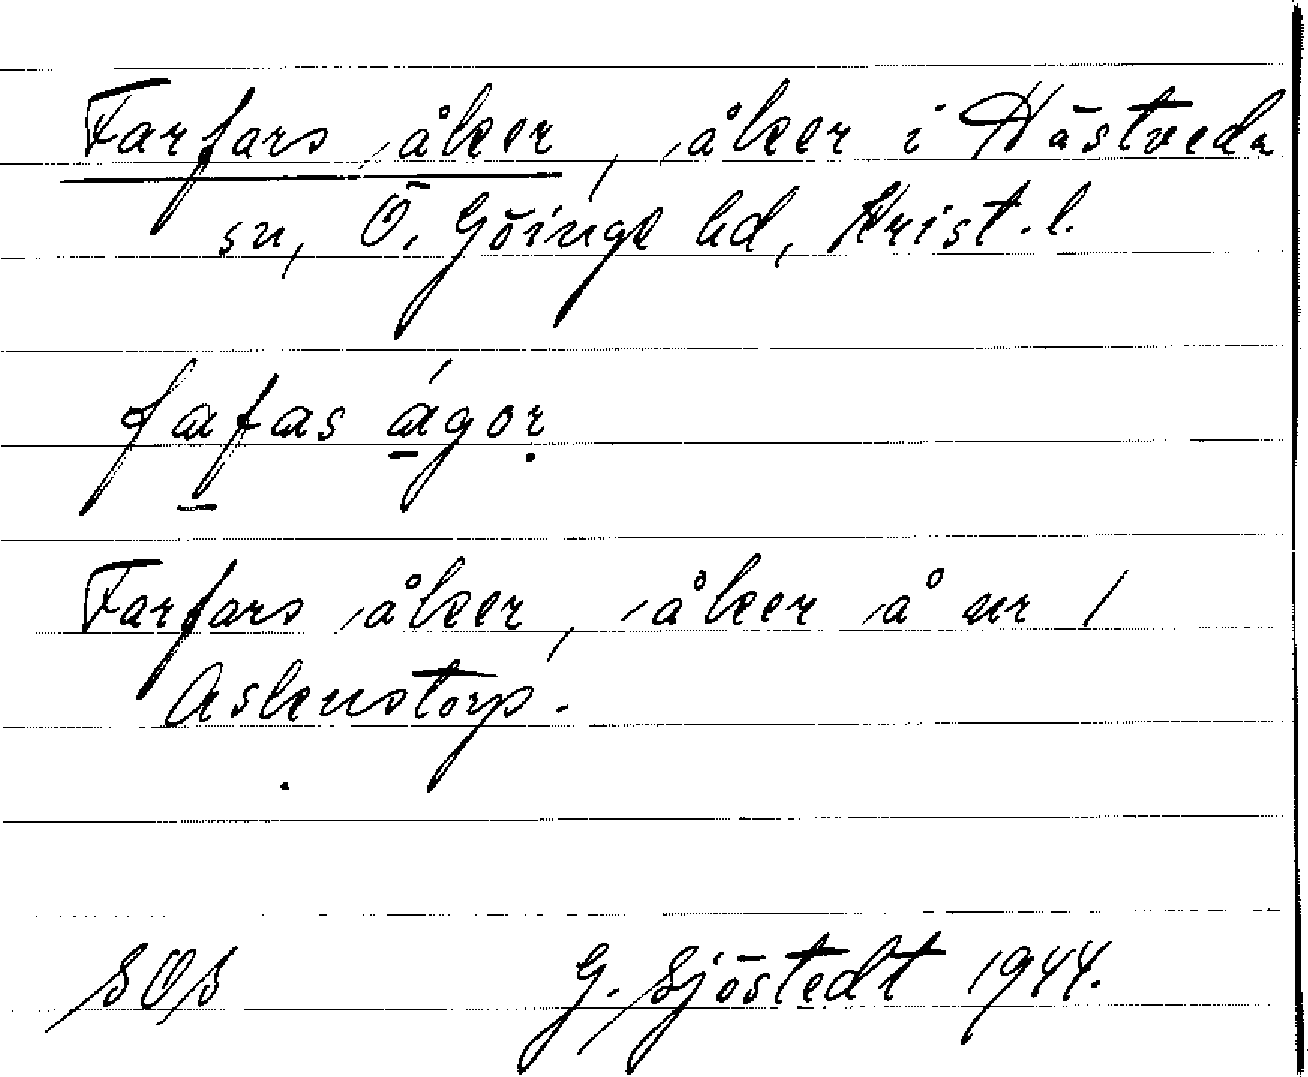 Farfars åker, åker i Hästveda
sn, Ö. Göinge hd, Krist. l.
fafas ágor
Farfars åker, åker å nr 1
Askenstorp.
SOS G. Sjöstedt 1944.